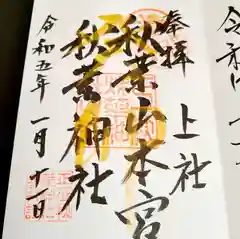 奉拝
上社
秋葉山本宮
秋葉神社
令和五年
一月十一日